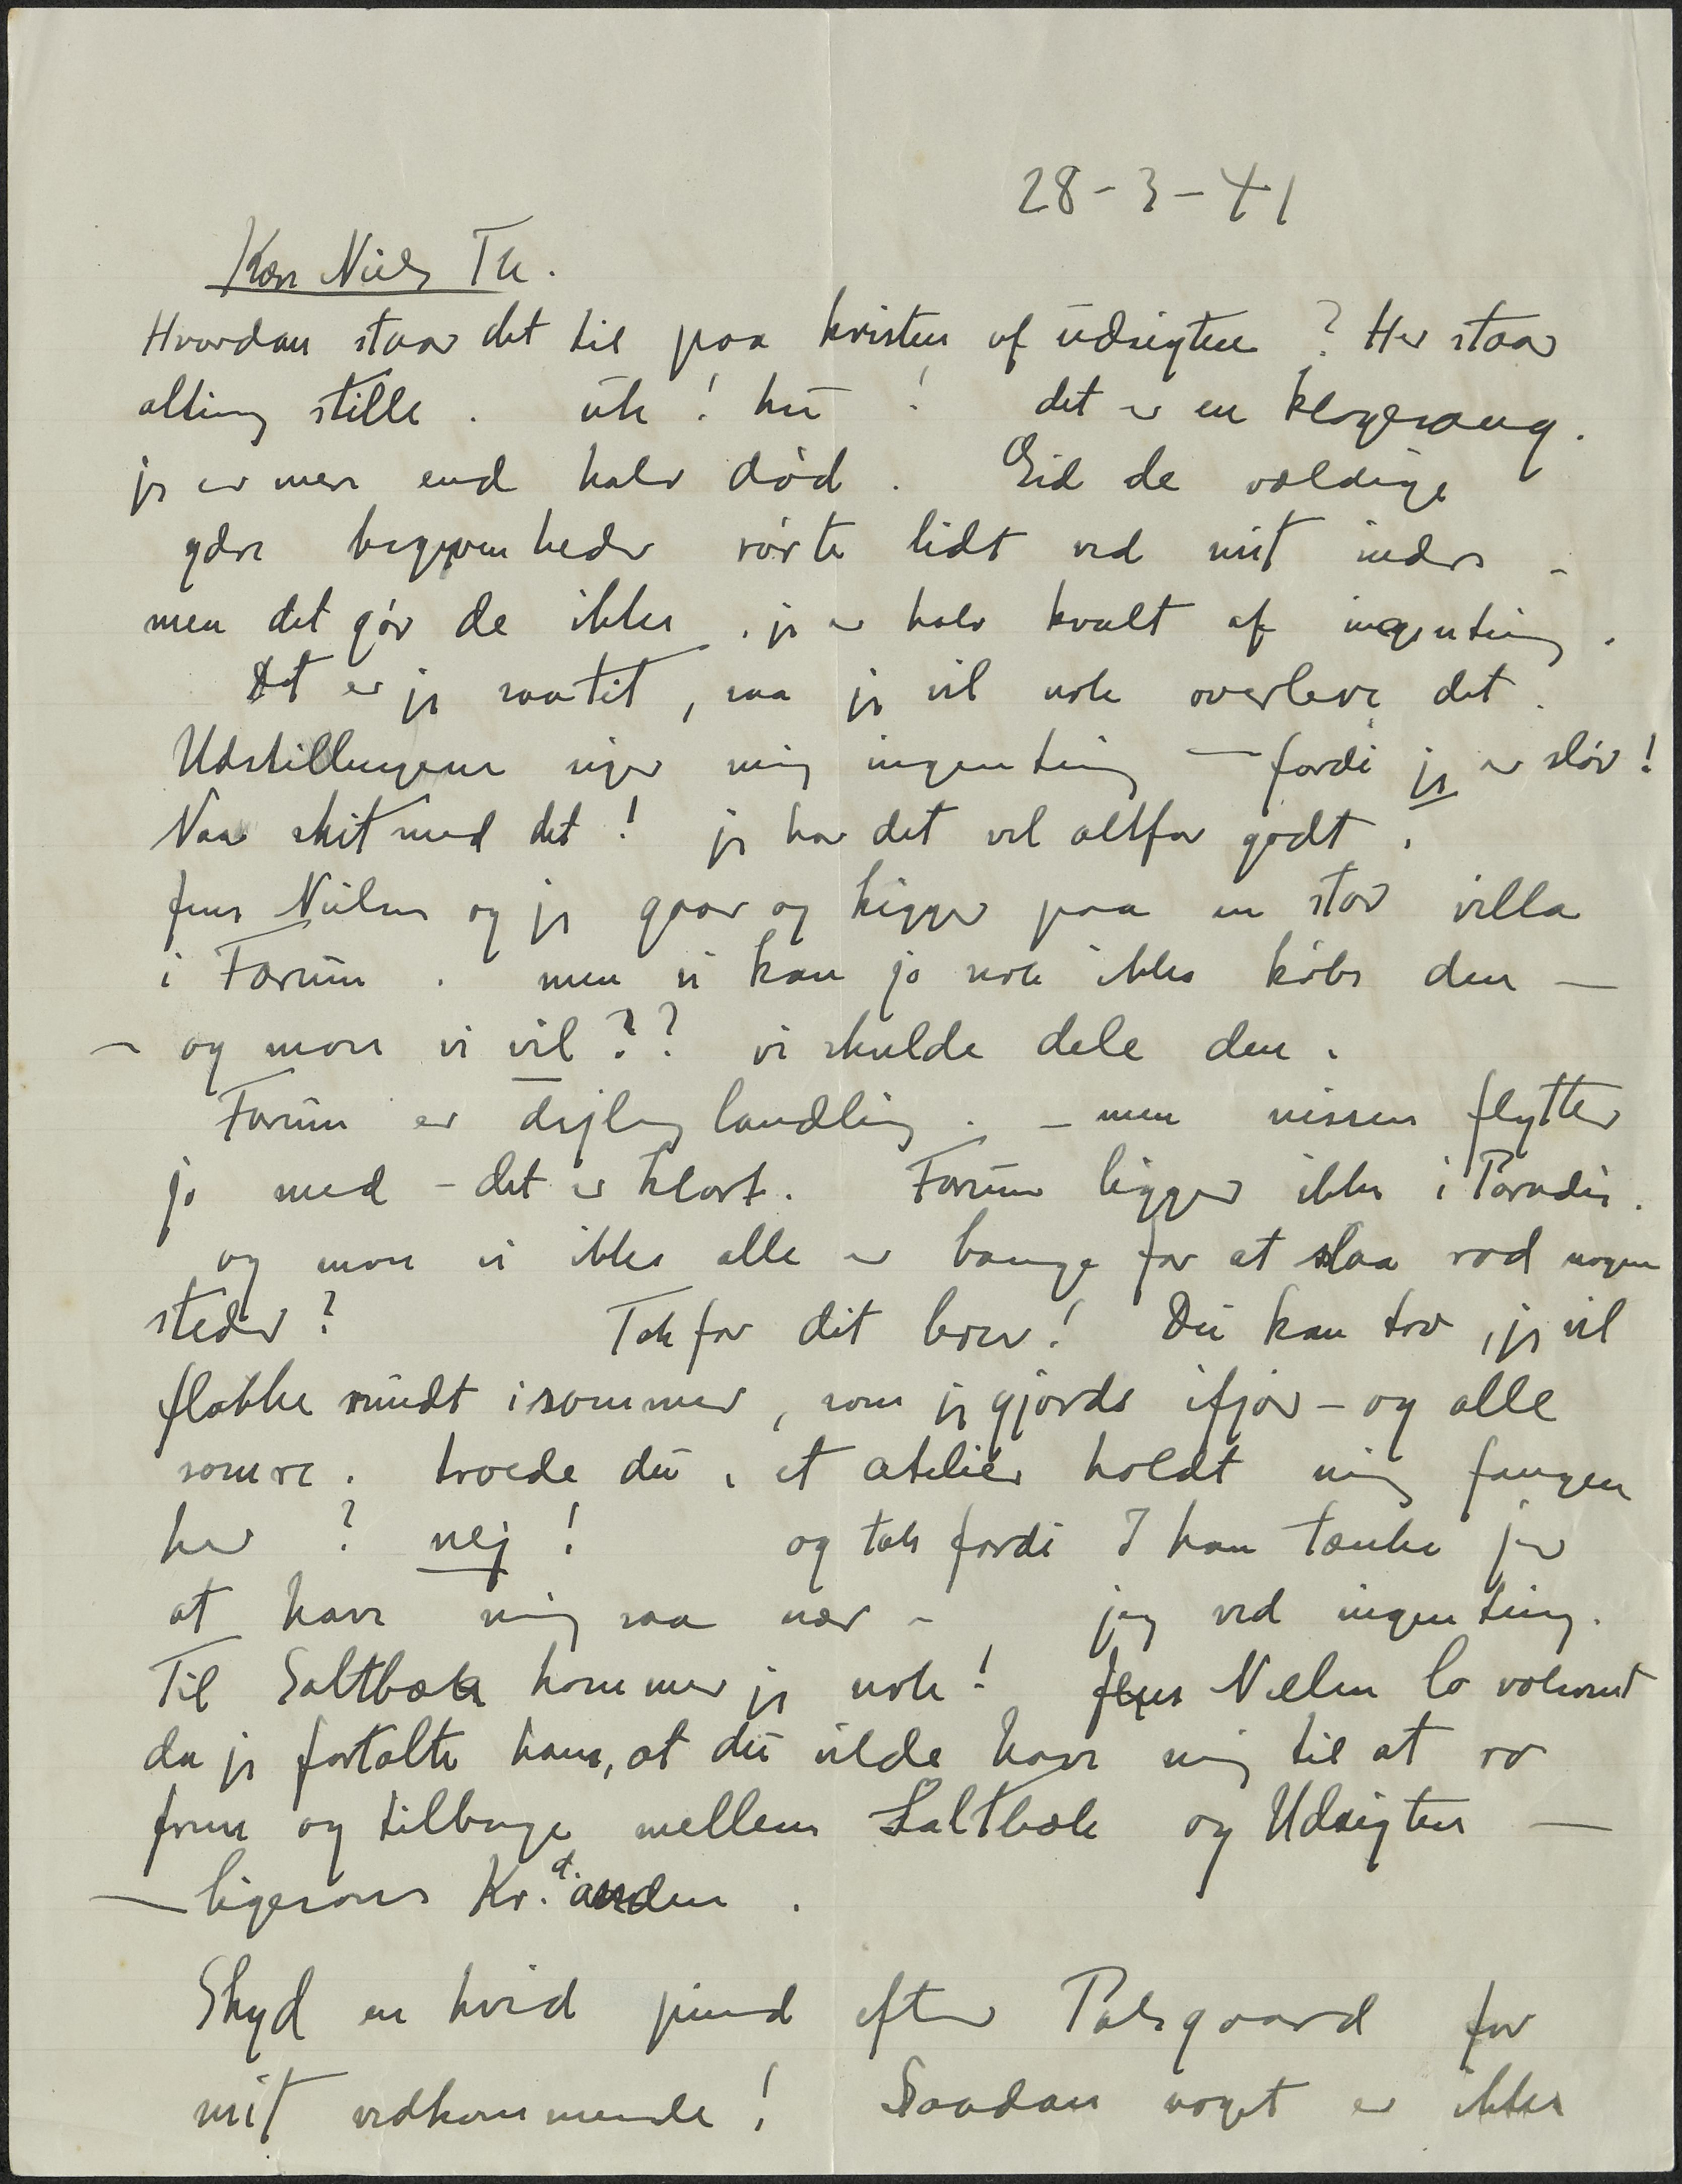 28-3-41
Kære Niels Th.
Hvordan staar det til paa kvisten af udsigten? Her staar
alting stille. uh! hu! det er en klagesang.
jeg er mere end halv død. Gid de vældige
ydre begivenheder rørte lidt ved mit indre -
men det gør de ikke. jeg er halv kvalt af ingenting.
Det er jeg saa tit, saa jeg vil nok overleve det.
Udstillingerne siger mig ingenting - fordi jeg er sløv!
Naa skit med det! jeg har det vel altfor godt.
Jens Nielsen og jeg gaar og kigger paa en stor villa
i Farum. men vi kan jo nok ikke købe den -
- og mon vi vil?? vi skulde dele den.
Farum er dejlig landlig. - men nissen flytter
jo med - det er klart. Farum ligger ikke i Paradis.
og mon vi ikke alle er bange for at slaa rod nogen
steder? Tak for dit brev! Du kan tro, jeg vil
flakke rundt i sommer, som jeg gjorde ifjor - og alle
somre. troede du, et atelier holdt mig fangen
her? nej! og tak fordi I kan tænke jer
at have mig saa nær - jeg ved ingenting.
Til Saltbæk kommer jeg nok! Jens Nielsen lo voldsomt
da jeg fortalte ham, at du vilde have mig til at ro
frem og tilbage mellem Saltbæk og Udsigten -
- ligesom Kr. d. anden.
Skyd en hvid pind efter Palsgaard for
mit vedkommende! Saadan noget er ikke